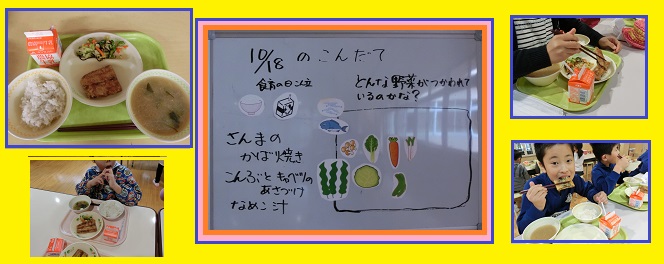 10/18 のこんだて
食育の日
どんな野菜がつかわれて
いるのかな?
さんまの
かば焼き
こんぶと キャベツの
あさづけ
なめこ汁